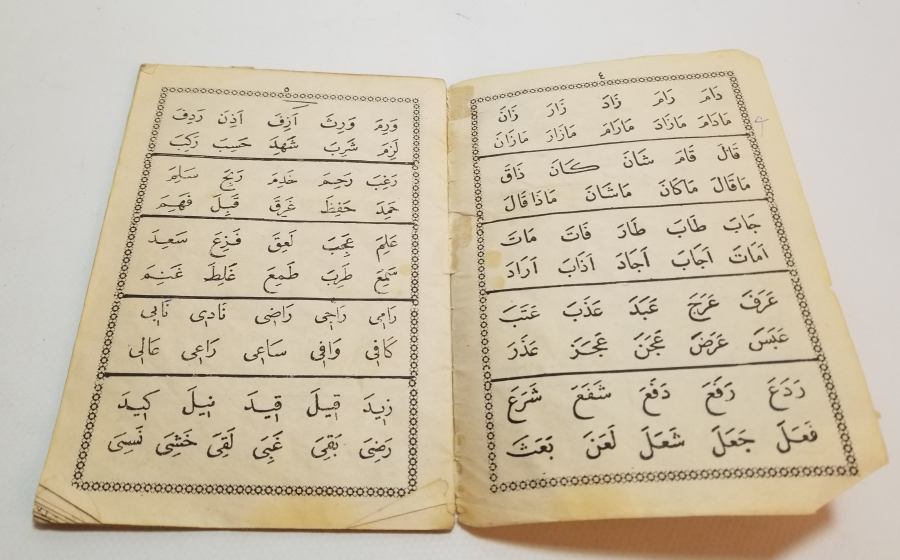 ٤
دَامَ رَامَ زَادَ زَارَ زَانَ
مَادَامَ مَازَادَ مَارَامَ مَازَارَ مَازَانَ
قَالَ قَامَ شَانَ كَانَ ذَاقَ
مَاقَالَ مَاكَانَ مَاشَانَ مَاذَا قَالَ
جَابَ طَابَ طَارَ فَاتَ مَاتَ
اَمَاتَ اَجَابَ اَجَادَ اَذَابَ اَرَادَ
عَرَفَ عَرَجَ عَبَدَ عَذَبَ عَتَبَ
عَبَسَ عَرَضَ عَجَنَ عَجَزَ عَذَرَ
رَدَعَ رَفَعَ دَفَعَ شَفَعَ شَرَعَ
فَعَلَ جَعَلَ شَعَلَ لَعَنَ بَعَثَ
٥
وَرِمَ وَرِثَ اَزِفَ اَذِنَ رَدِفَ
لَزِمَ شَرِبَ شَهِدَ حَسِبَ رَكِبَ
رَغِبَ رَحِيمَ خَدِمَ رَبِحَ سَلِمَ
حَمِدَ حَفِظَ غَرِقَ قَبِلَ فَهِمَ
عَلِمَ عَجِبَ لَعِقَ فَزِعَ سَعِدَ
سَمِعَ طَرِبَ طَمِعَ غَلِطَ غَنِمَ
رَامِي رَاجِي رَاضِي نَادِي نَابِي
كَافِي وَافِي سَاعِي رَاعِي عَالِي
زِيدَ قِيلَ قِيدَ مِيلَ كِيدَ
رَضِيَ بَقِيَ غَبِيَ لَقِيَ خَشِيَ نَسِيَ